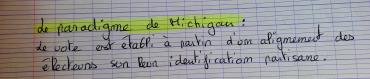 Le paradigme de Michigan :
Le vote est établi à partir d'un alignement des
électeurs sur leur identification partisane.